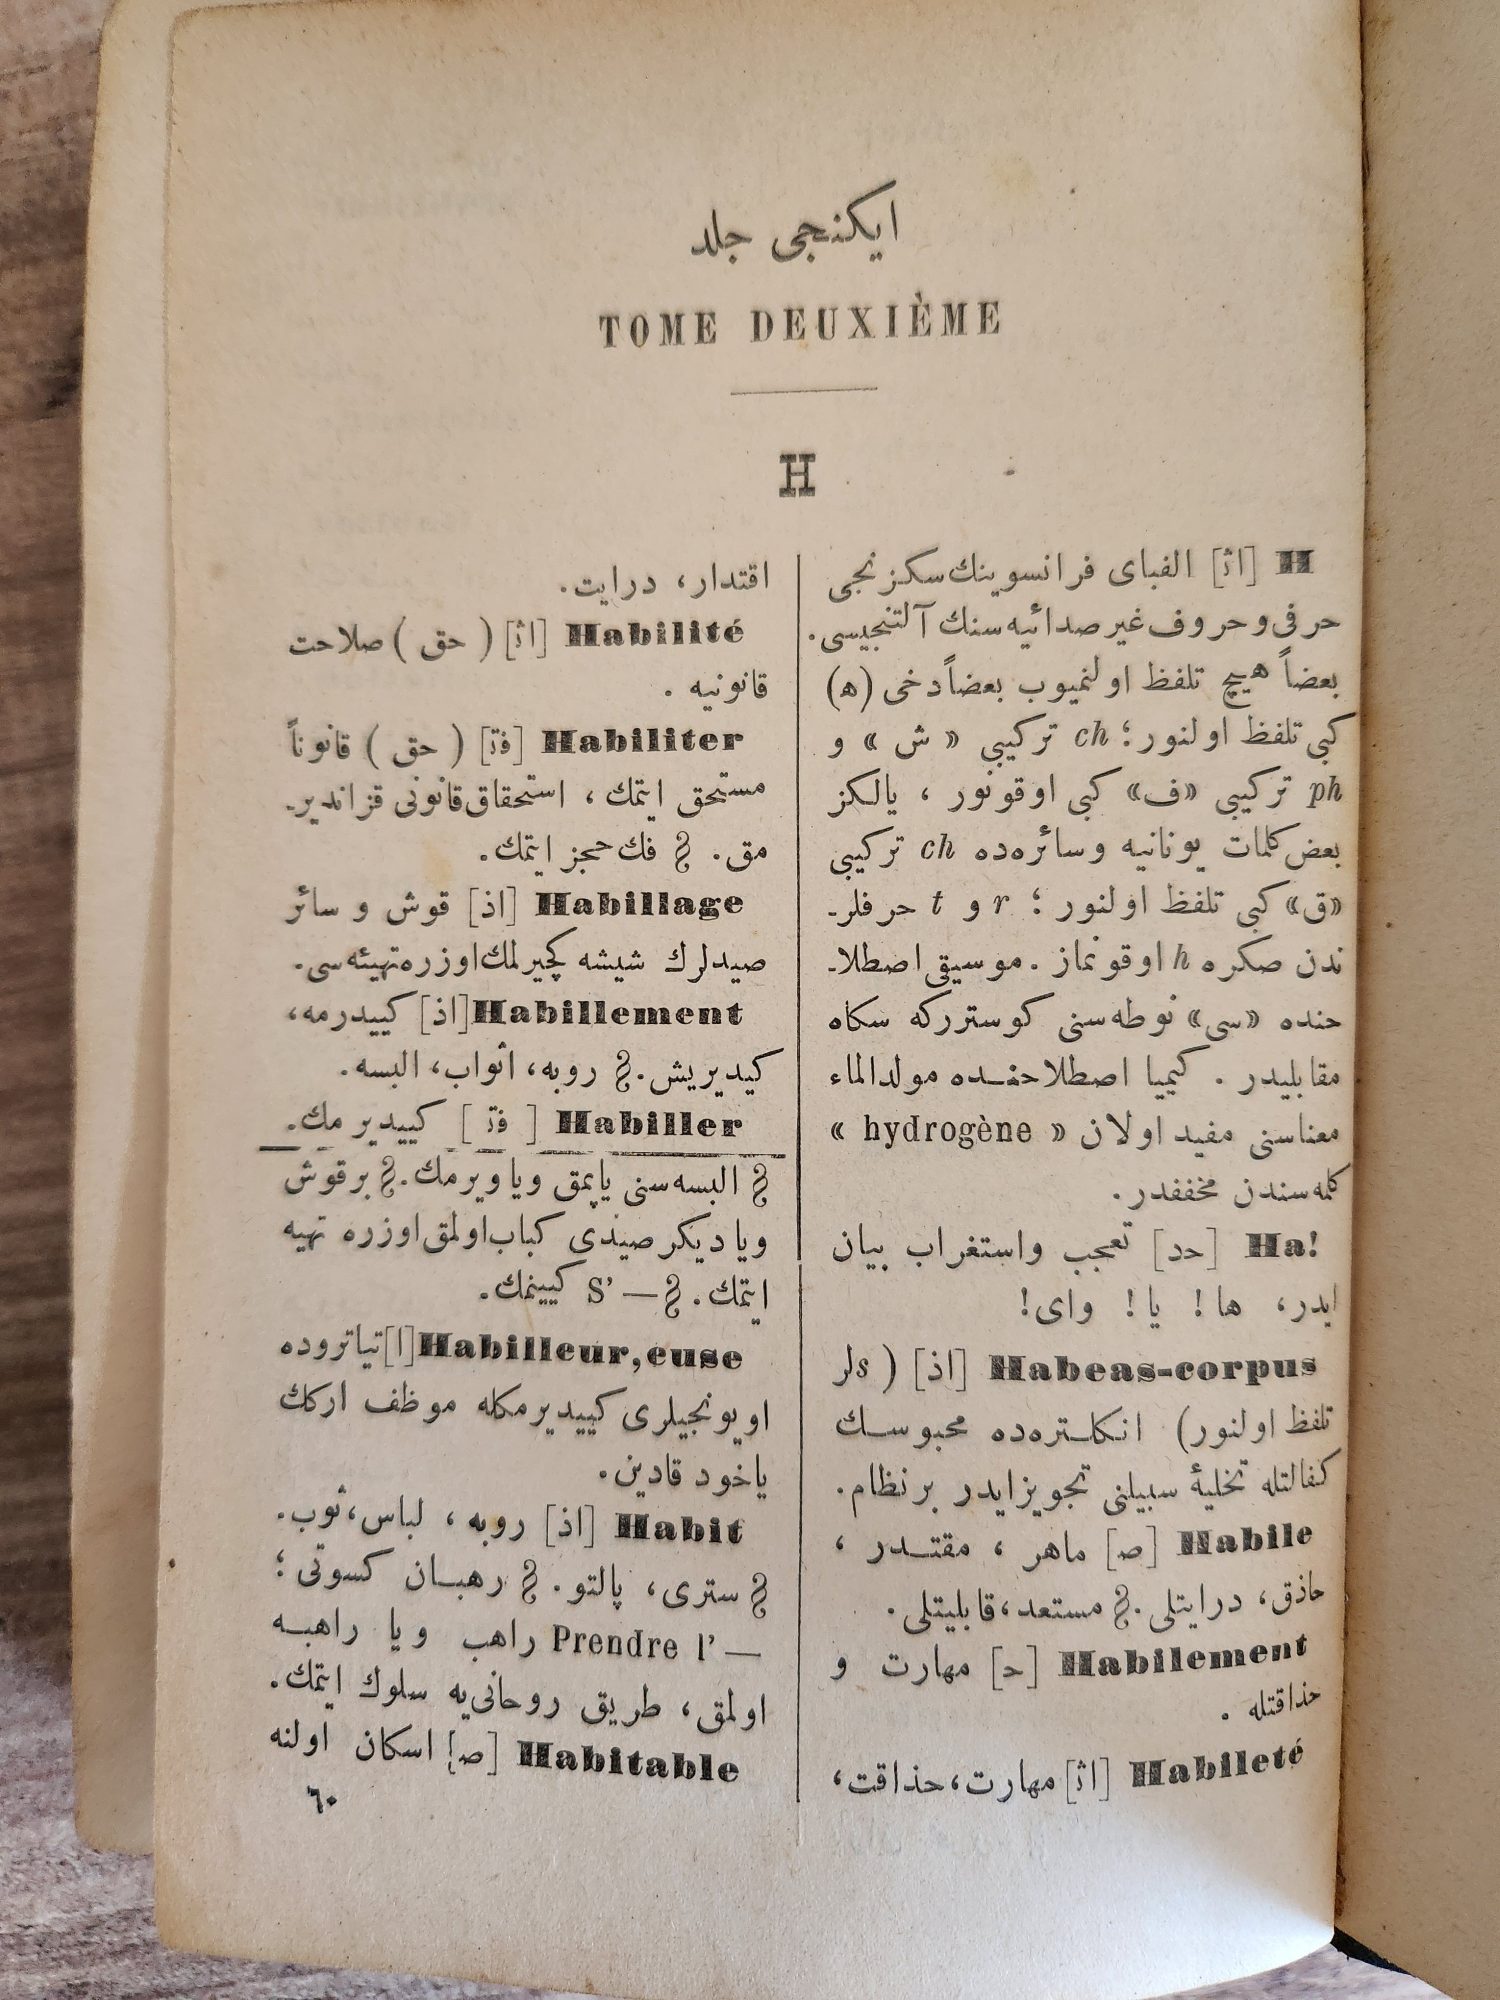 ایکنجی جلد
TOME DEUXIÈME
H
H [اث] الفبای فرانسوینك سکزنجی
حرفی و حروف غیر صدائیه سنك آلتنجیسی.
بعضاً هیچ تلفظ اولنمیوب بعضاً دخی (ه)
کبی تلفظ اولنور؛ ch ترکیبی «ش» و
ph ترکیبی «ف» کبی اوقونور ، یالکز
بعض کلمات یونانیه و سائره ده ch ترکیبی
«ق» کبی تلفظ اولنور ؛ r و t حرفلر-
ندن صکره h اوقونماز . موسیقی اصطلا-
حنده «سی» نوطه سنی کوسترر که سکاه
مقابلیدر . کیمیا اصطلاحنده مولدالماء
معناسنی مفید اولان « hydrogène »
کلمه سندن مخففدر.
Ha! [حد] تعجب واستغراب بیان
ایدر، ها! یا! وای!
Habeas-corpus [اذ] ( s لر
تلفظ اولنور) انکلتره ده محبوسك
کفالتله تخلیهٔ سبیلنی تجویز ایدر بر نظام.
Habile [ص] ماهر ، مقتدر ،
حاذق، درایتلی. § مستعد، قابلیتلی.
Habilement [ح] مهارت و
حذاقتله .
Habileté [اث] مهارت، حذاقت،
اقتدار، درایت.
Habilité [اث] ( حق ) صلاحت
قانونیه .
Habiliter [فت] ( حق ) قانوناً
مستحق ایتمك ، استحقاق قانونی قزاندیر-
مق. § فك حجز ایتمك.
Habillage [اذ] قوش و سائر
صیدلرك شیشه کچیرلمك اوزره تهیئه سی.
Habillement [اذ] کییدرمه،
کیدیریش. § روبه، اثواب، البسه.
Habiller [ فت ] کییدیرمك.
§ البسه سنی یاپمق ویا ویرمك. § بر قوش
ویا دیکر صیدی کباب اولمق اوزره تهیه
ایتمك. § — S’ کیینمك.
Habilleur, euse [ا] تیاتروده
اویونجیلری کییدیرمکله موظف ارکك
یاخود قادین.
Habit [اذ] روبه ، لباس، ثوب.
§ ستری، پالتو. § رهبان کسوتی؛
— Prendre l’ راهب ویا راهبه
اولمق، طریق روحانی یه سلوك ایتمك.
Habitable [ص] اسکان اولنه
٦٠